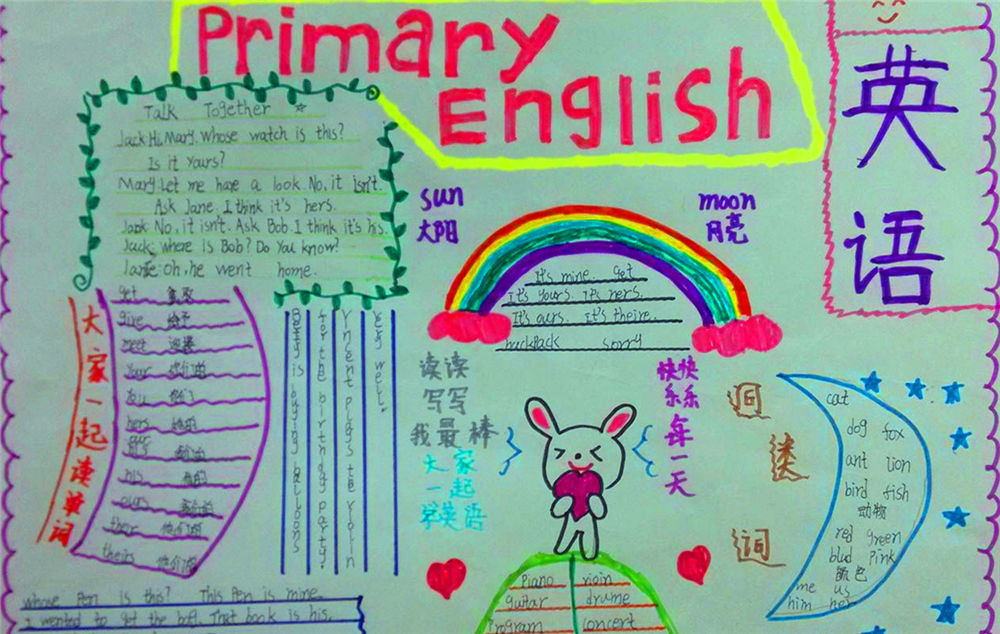 Primary
English
英
语
Talk Together
Jack: Hi, Mary. Whose watch is this?
Is it Yours?
Mary: Let me have a look. No, it isn't.
Ask Jane. I think it's hers.
No, it isn't. Ask Bob. I think it's his.
Jack: where is Bob? Do You know?
Oh, he went home.
sun
太阳
moon
月亮
It's mine. get
It's yours. It's hers.
It's ours. It's theire.
backpack sorry
大家一起读单词
get
give 给予
meet 迎接
Your 你们的
You 你们
hers 她的
his 他的
ours
their 他们的
theirs 他们的
is buying balloons
for the birthday party.
Vincent plays the violin
very well.
读读
写写
我最棒
大家
一起
学英语
快快
乐乐
每
一
天
词
cat
dog fox
ant lion
bird fish
动物
red green
blud Pink
颜色
me us
him her
Piano
guitar drume
Program concert
whose Pen is this? This Pen is mine.
I wented to get the That book is his.